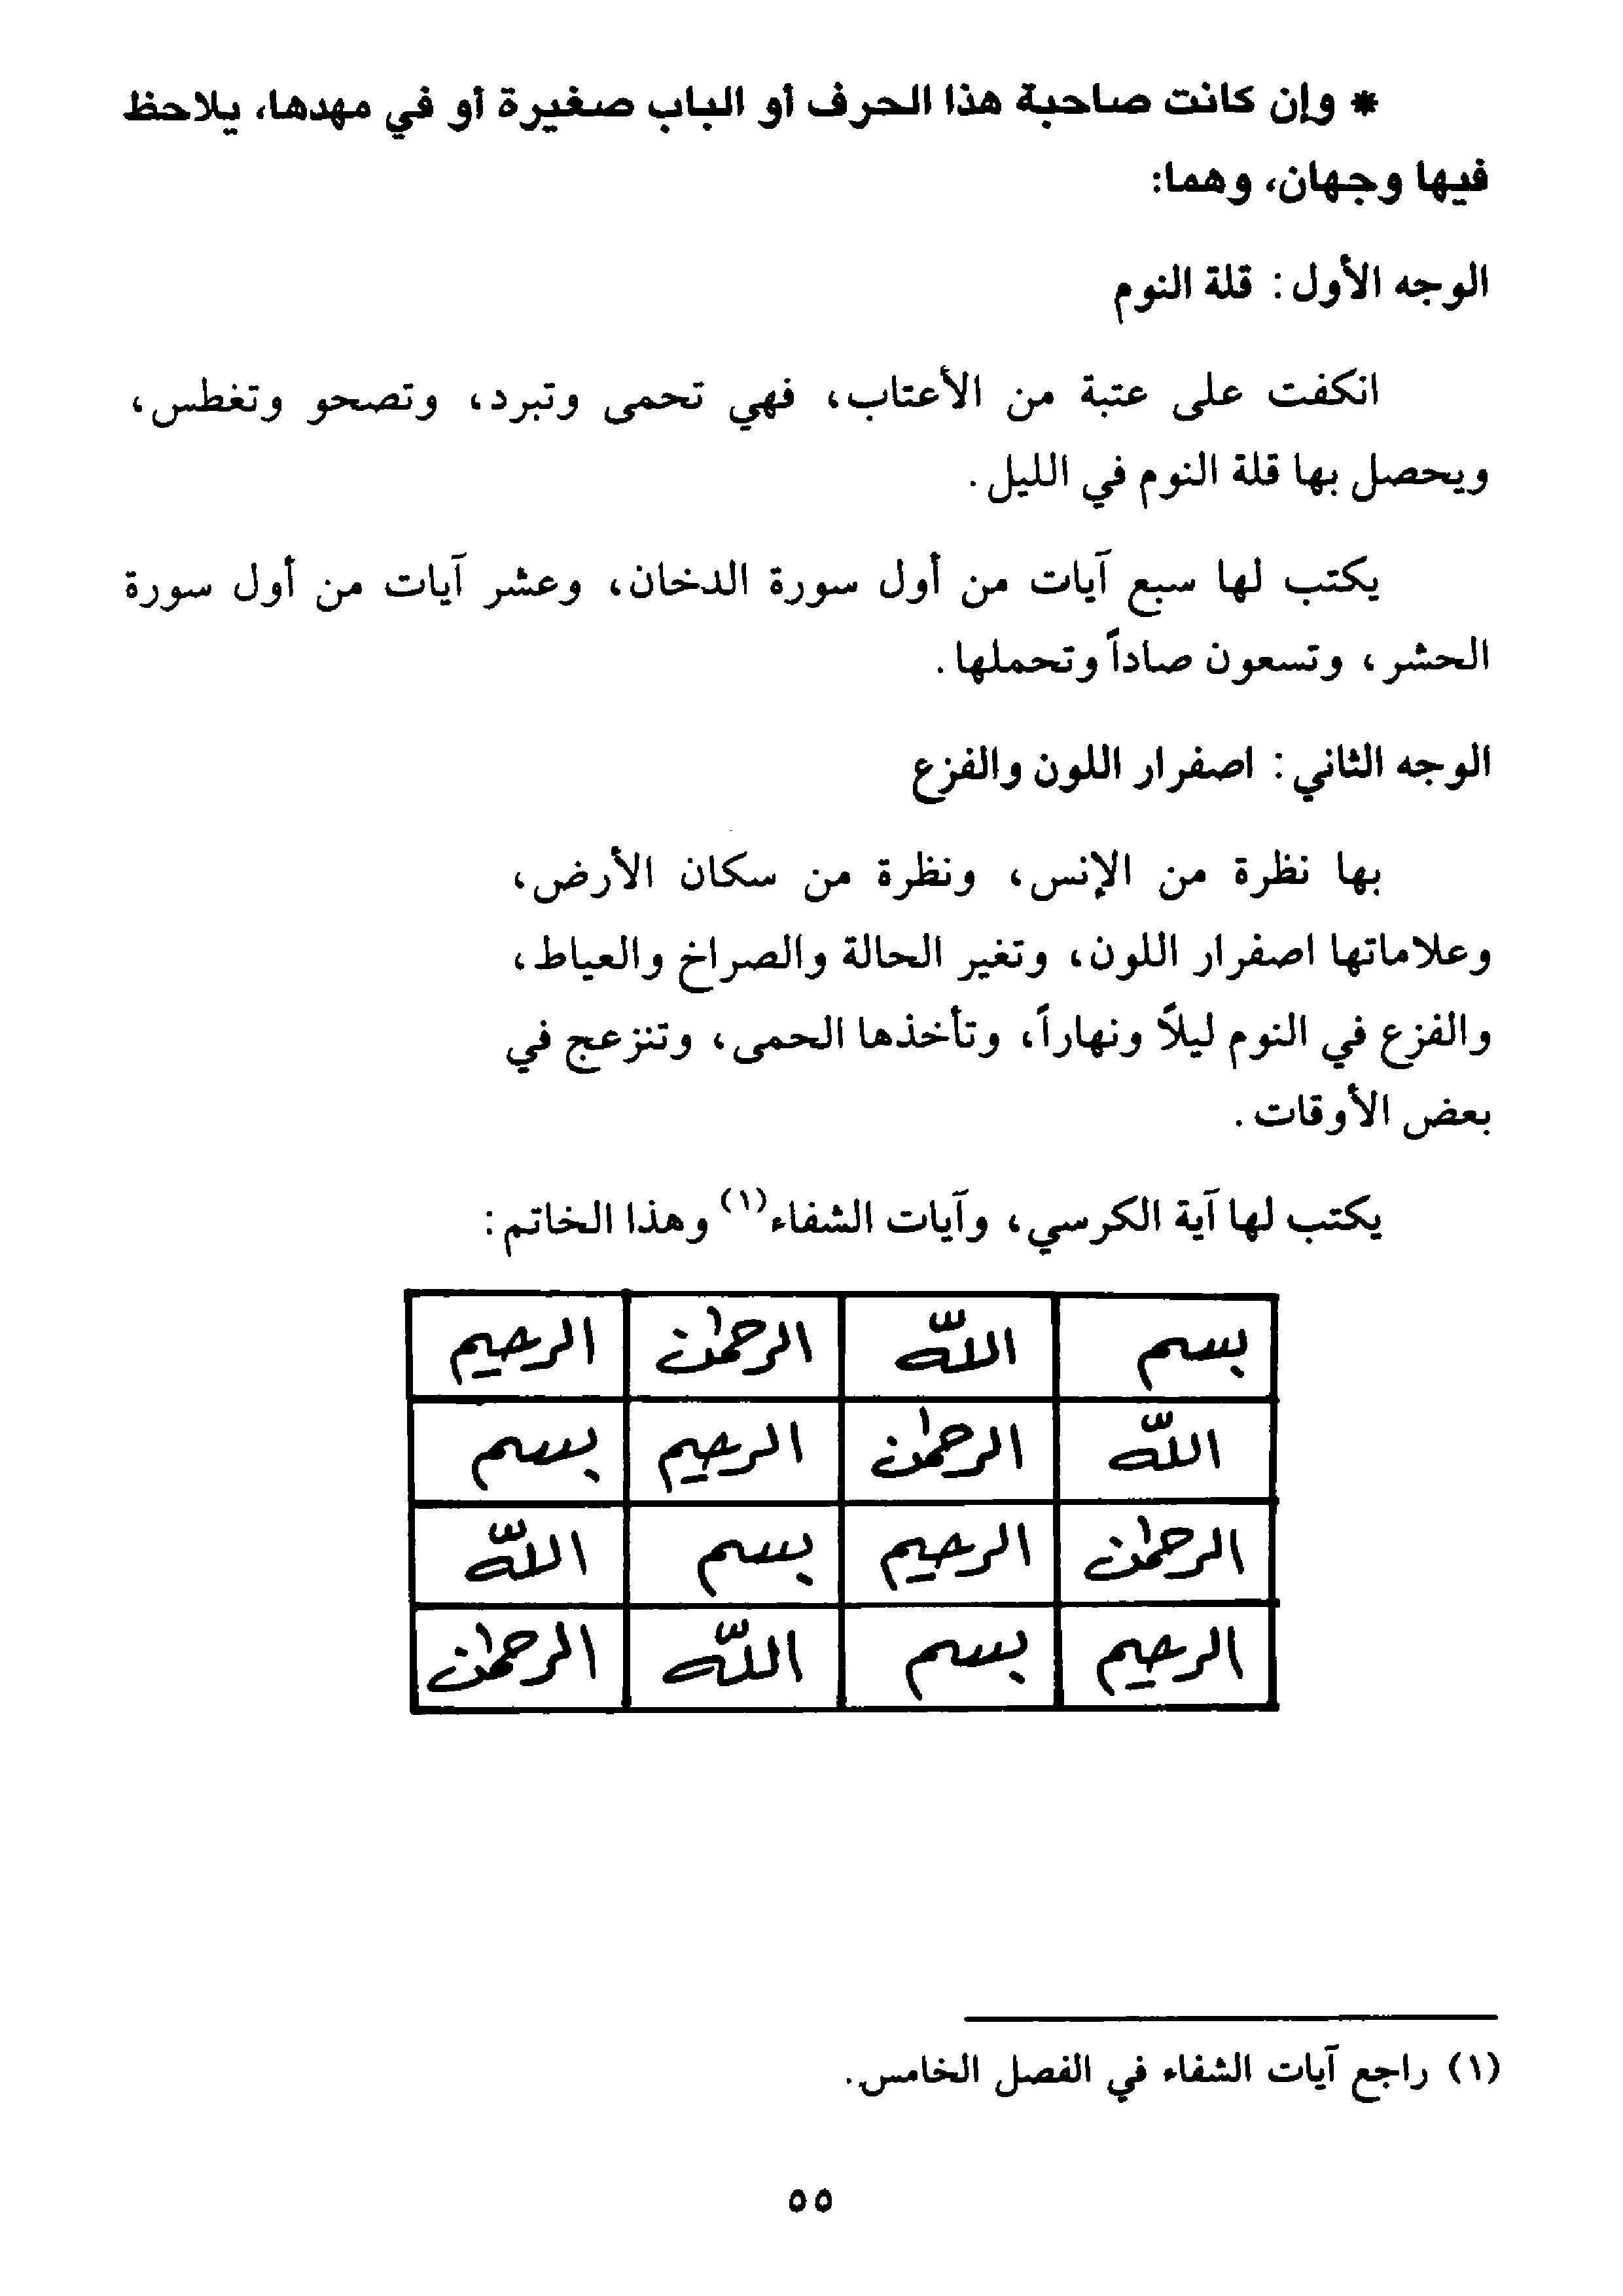 * وإن كانت صاحبة هذا الحرف أو الباب صغيرة أو في مهدها، يلاحظ
فيها وجهان، وهما:
الوجه الأول: قلة النوم
انكفت على عتبة من الأعتاب، فهي تحمى وتبرد، وتصحو وتغطس،
ويحصل بها قلة النوم في الليل.
يكتب لها سبع آيات من أول سورة الدخان، وعشر آيات من أول سورة
الحشر، وتسعون صاداً وتحملها.
الوجه الثاني: اصفرار اللون والفزع
بها نظرة من الإنس، ونظرة من سكان الأرض،
وعلاماتها اصفرار اللون، وتغير الحالة والصراخ والعياط،
والفزع في النوم ليلاً ونهاراً، وتأخذها الحمى، وتنزعج في
بعض الأوقات.
يكتب لها آية الكرسي، وآيات الشفاء(١) وهذا الخاتم:
بسم الله الرحمٰن الرحيم
الله الرحمٰن الرحيم بسم
الرحمٰن الرحيم بسم الله
الرحيم بسم الله الرحمٰن
(١) راجع آيات الشفاء في الفصل الخامس.
٥٥